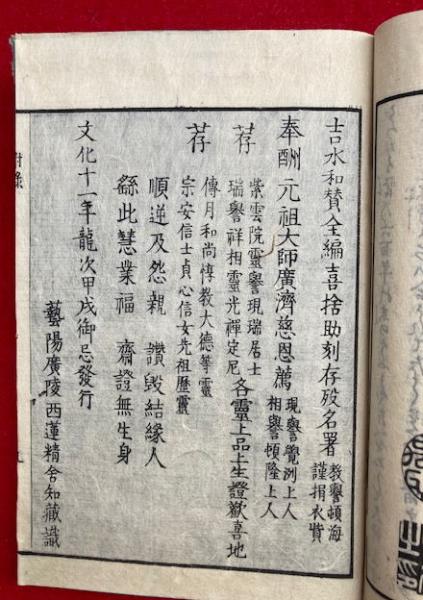 吉水和賛全編喜捨助刻存歿名署
教譽頓海
謹捐衣貲
奉酬元祖大師廣濟慈恩薦
現譽覺洲上人
相譽頓隆上人
荐
紫雲院靈譽現瑞居士
瑞譽祥相靈光禪定尼
各靈上品上生證歡喜地
荐
傳月和尚惇教大德等靈
宗安信士貞心信女先祖歷靈
順逆及怨親 讃毀結緣人
繇此慧業福 齋證無生身
文化十一年龍次甲戌御忌發行
藝陽廣陵西蓮精舍知藏識
附錄